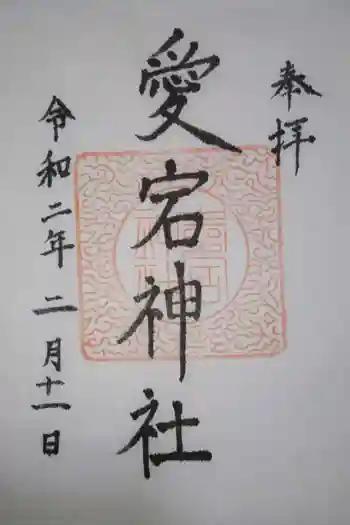 奉拝
愛宕神社
令和二年二月十一日